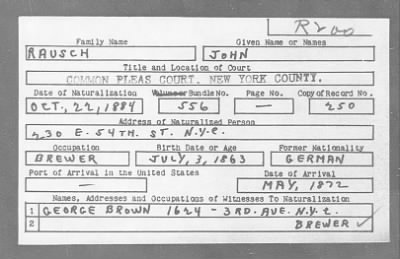 R200
Family Name Given Name or Names
RAUSCH JOHN
Title and Location of Court
COMMON PLEAS COURT, NEW YORK COUNTY.
Date of Naturalization Volume or Bundle No. Page No. Copy of Record No.
OCT., 22, 1884 556 — 250
Address of Naturalized Person
230 E. 54TH. ST. N.Y.C.
Occupation Birth Date or Age Former Nationality
BREWER JULY, 3, 1863 GERMAN
Port of Arrival in the United States Date of Arrival
— MAY, 1872
Names, Addresses and Occupations of Witnesses To Naturalization
1 GEORGE BROWN 1624 - 3RD. AVE. N.Y.C.
2 BREWER ✓